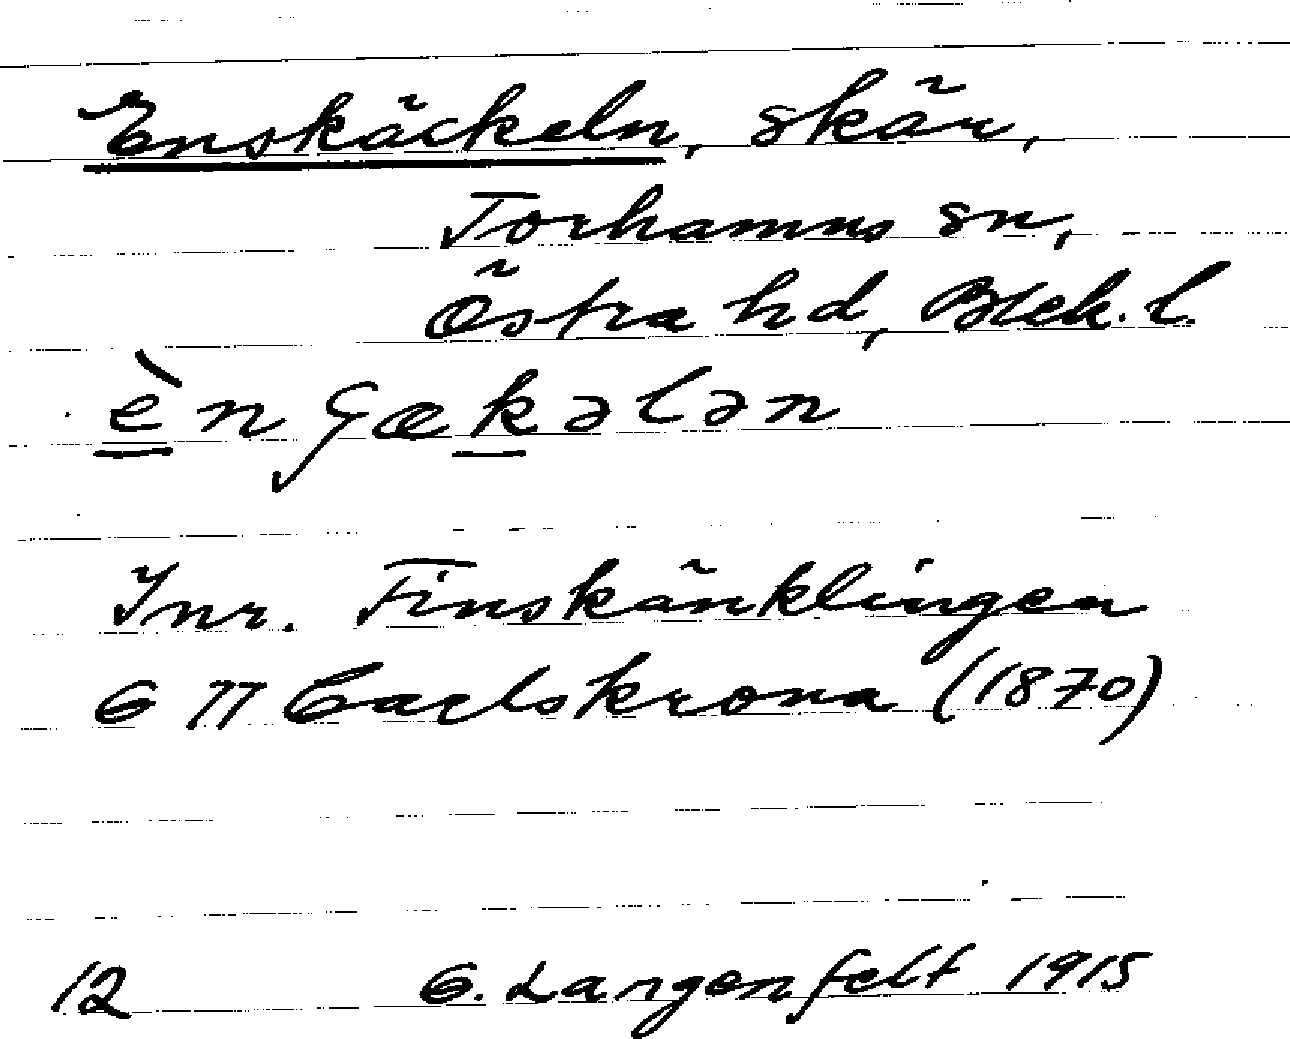 Enskäckeln, skär,
Torhamns sn,
Östra hd, Blek. l.
Inr. Finskänklingen
G 77 Carlskrona (1870)
12 G. Langenfelt 1915